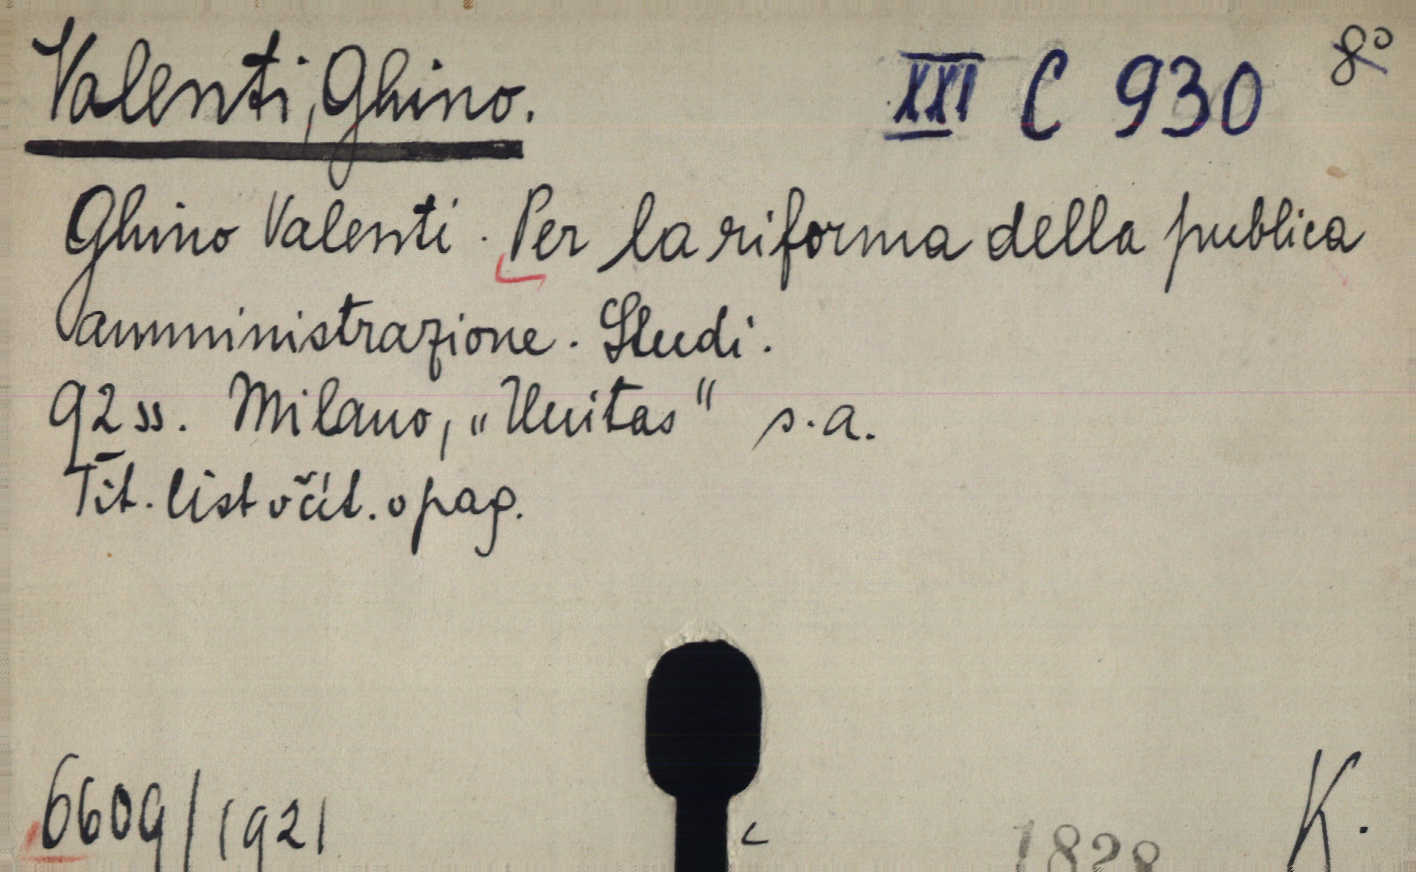 Valenti, Ghino. XXI C 930 8°
Ghino Valenti. Per la riforma della publica
amministrazione. Studi.
92 ss. Milano, „Unitas" s.a.
Tit. list včít. o pag.
6609/1921
1828 K.